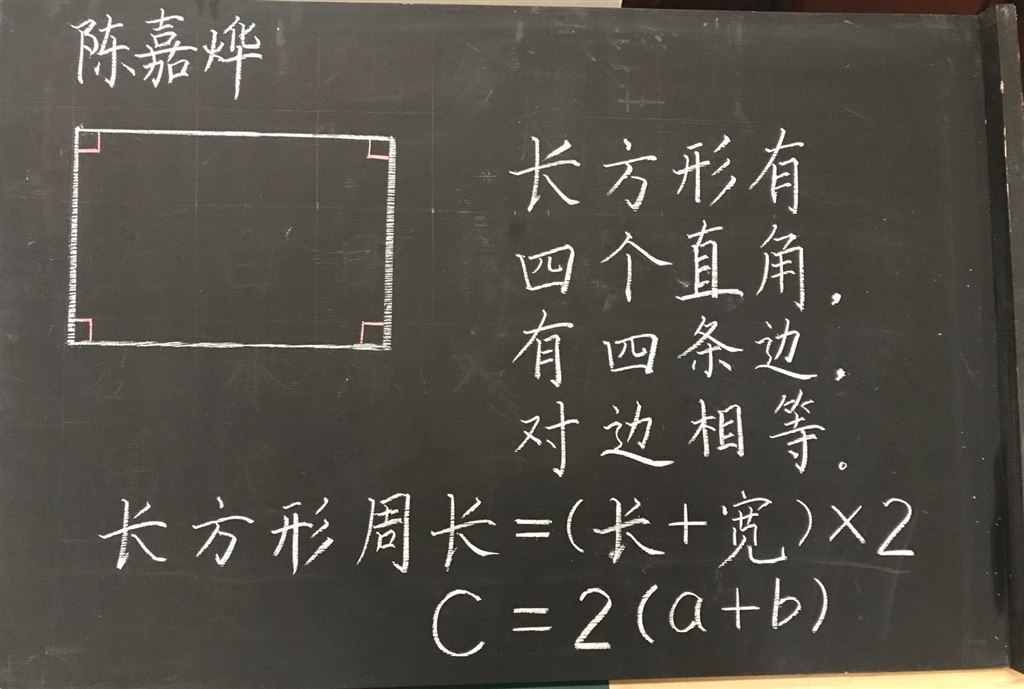 陈嘉烨
长方形有
四个直角,
有四条边,
对边相等。
长方形周长=(长+宽)×2
C=2(a+b)